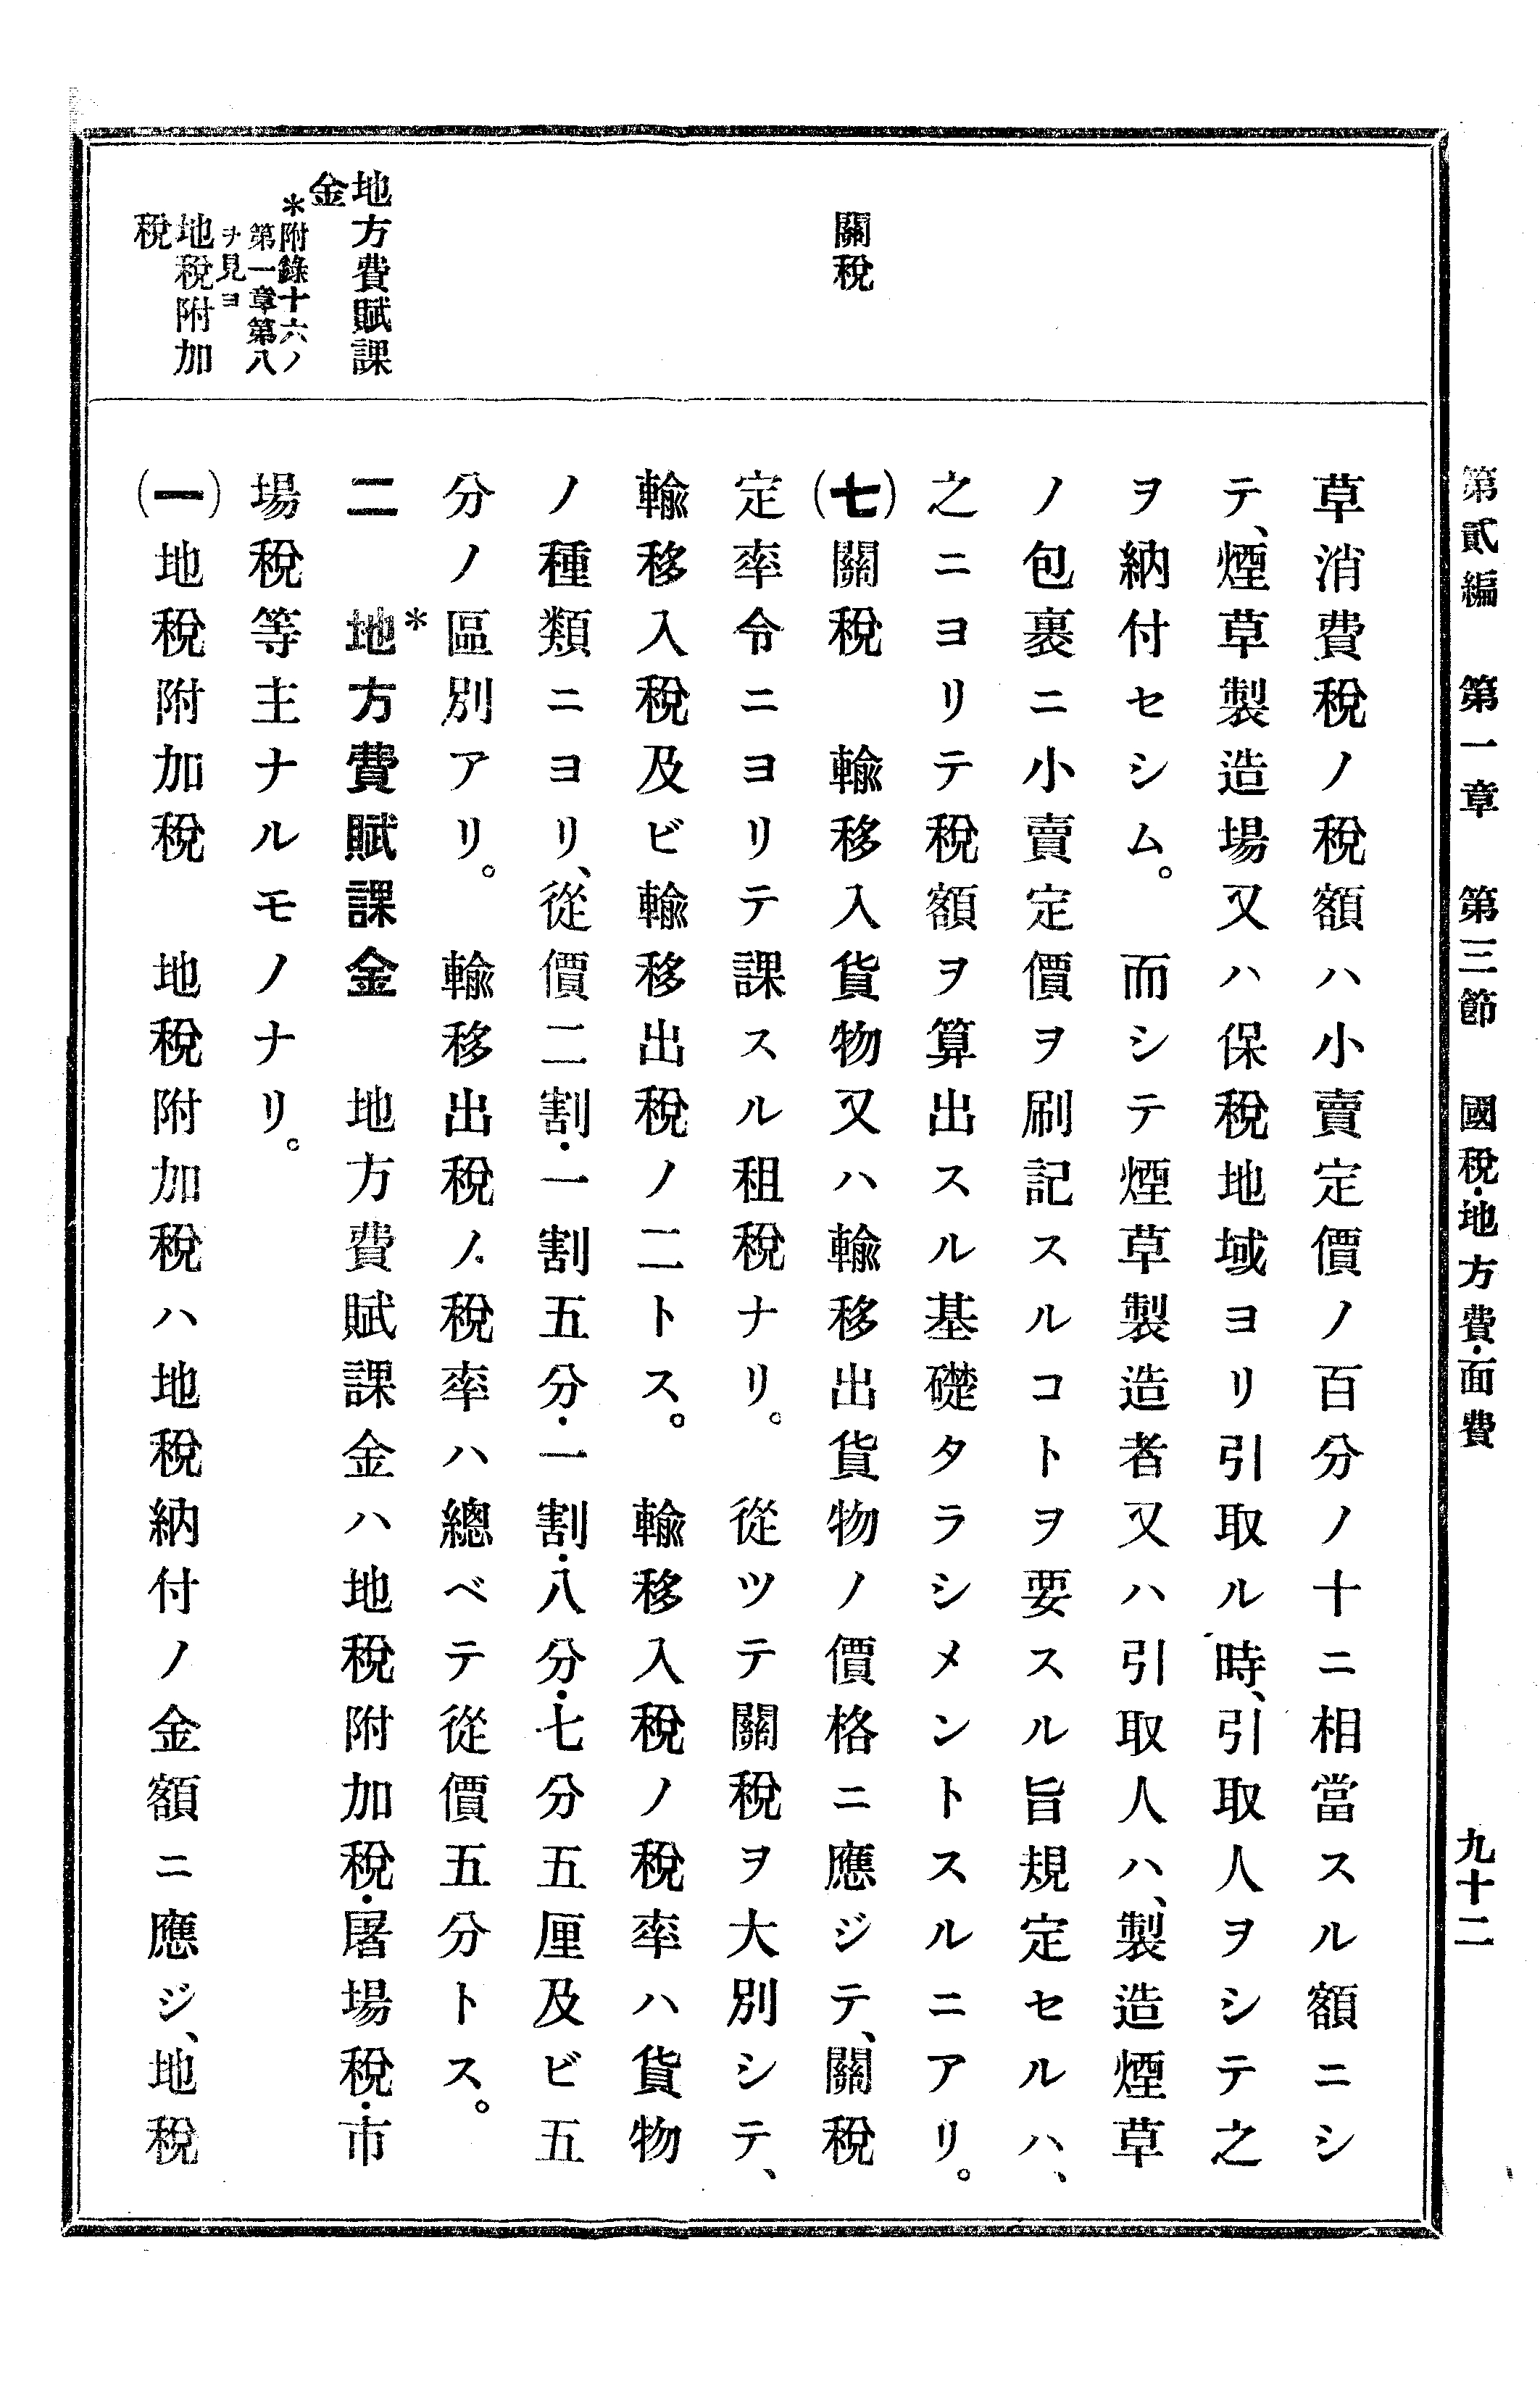 第貳編　第一章　第三節　國稅・地方費・面費　九十二
草消費稅ノ稅額ハ小賣定價ノ百分ノ十ニ相當スル額ニシ
テ、煙草製造場又ハ保稅地域ヨリ引取ル時、引取人ヲシテ之
ヲ納付セシム。而シテ煙草製造者又ハ引取人ハ、製造煙草
ノ包裹ニ小賣定價ヲ刷記スルコトヲ要スル旨規定セルハ、
之ニヨリテ稅額ヲ算出スル基礎タラシメントスルニアリ。
關稅
(七)關稅　輸移入貨物又ハ輸移出貨物ノ價格ニ應ジテ、關稅
定率令ニヨリテ課スル租稅ナリ。從ツテ關稅ヲ大別シテ、
輸移入稅及ビ輸移出稅ノ二トス。輸移入稅ノ稅率ハ貨物
ノ種類ニヨリ、從價二割・一割五分・一割・八分・七分五厘及ビ五
分ノ區別アリ。輸移出稅ノ稅率ハ總ベテ從價五分トス。
地方費賦課
金
＊附錄十六ノ
第一章第八
ヲ見ヨ
二　＊地方費賦課金　地方費賦課金ハ地稅附加稅・屠場稅・市
場稅等主ナルモノナリ。
地稅附加
稅
(一)地稅附加稅　地稅附加稅ハ地稅納付ノ金額ニ應ジ、地稅